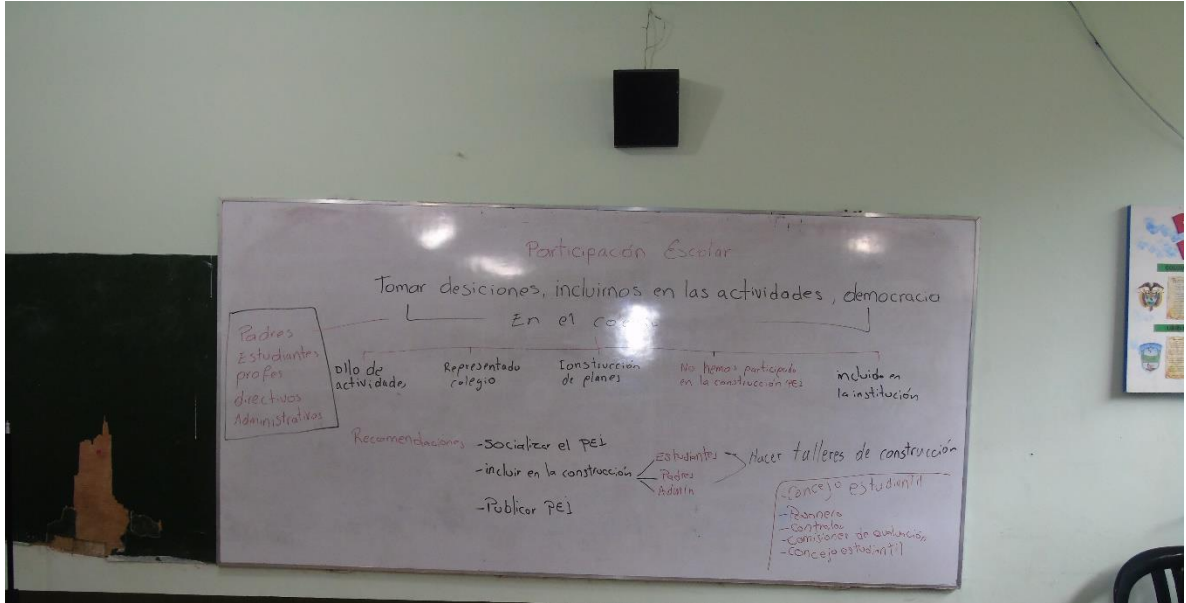 Participacón Escolar
Tomar desiciones, incluirnos en las actividades, democracia
En el
Padres
Estudiantes
profes
directivos
Administrativos
Dllo de
actividades
Representado
colegio
Construcción
de planes
No hemos participado
en la construcción PEI
incluido en
la institución
Recomendaciones
-Socializar el PEI
-incluir en la construcción
-Publicar PEI
Estudiantes
Padres
Admin
Hacer talleres de construcción
-Concejo estudiantil
-Personero
-Contralor
-Comisiones de evaluación
-Concejo estudiantil